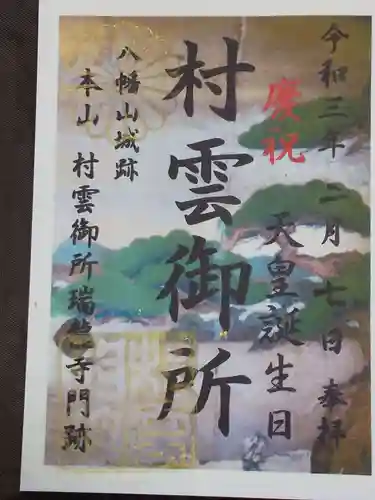 令和三年 二月 七日 奉拝
慶祝
天皇誕生日
村雲御所
八幡山城跡
本山 村雲御所瑞竜寺門跡